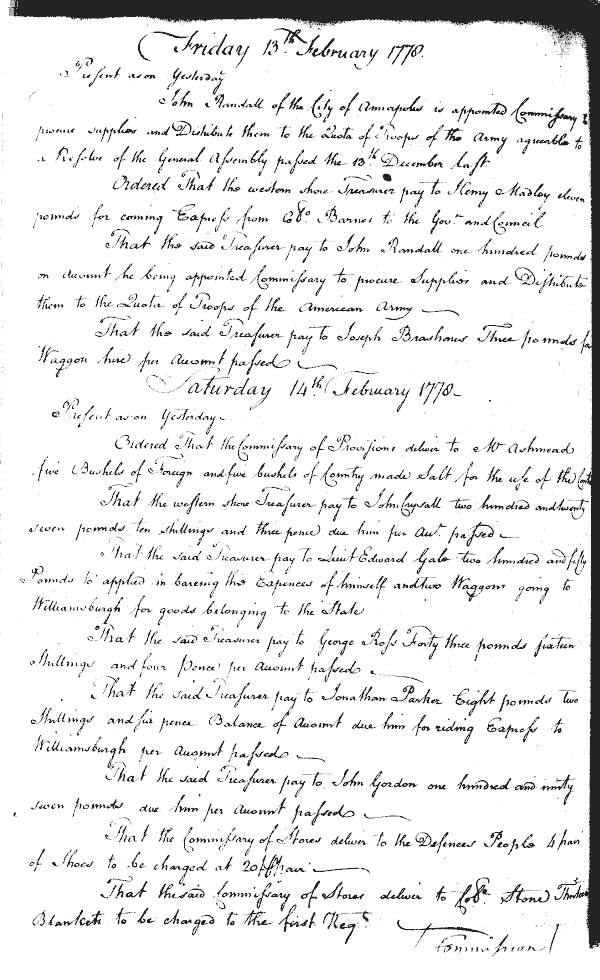 Friday 13th February 1778.
Present as on Yesterday
John Randall of the City of Annapolis is appointed Commissary to
procure supplies and Distribute them to the Quota of Troops of the Army agreeable to
a Resolve of the General Assembly passed the 13th December last
Ordered That the western shore Treasurer pay to Henry Madley eleven
pounds for coming Express from Colo. Barnes to the Govr. and Council
That the said Treasurer pay to John Randall one hundred pounds
on Account he being appointed Commissary to procure Supplies and Distribute
them to the Quota of Troops of the American Army
That the said Treasurer pay to Joseph Brashears Three pounds for
Waggon hire per Account passed
Saturday 14th February 1778
Present as on Yesterday
Ordered That the Commissary of Provisions deliver to Mr Ashmead
five Bushels of Foreign and five bushels of Country made Salt for the use of the
That the western shore Treasurer pay to John Crysall two hundred and twenty
seven pounds ten shillings and three pence due him per Acct. passed
That the said Treasurer pay to Lieut Edward Gale two hundred and fifty
Pounds to applied in bareing the Expences of himself and two Waggons going to
Williamsburgh for goods belonging to the State
That the said Treasurer pay to George Ross Forty three pounds sixteen
shillings and four Pence per Account passed
That the said Treasurer pay to Jonathan Parker Eight pounds two
shillings and six pence Balance of Account due him for riding Express to
Williamsburgh per Account passed
That the said Treasurer pay to John Gordon one hundred and ninty
seven pounds due him per Account passed
That the Commissary of Stores deliver to the Defences People 4 pair
of Shoes to be charged at 20/ pair
That the said Commissary of Stores deliver to Colo. Stone
Blankets to be charged to the first Regt.
Commission